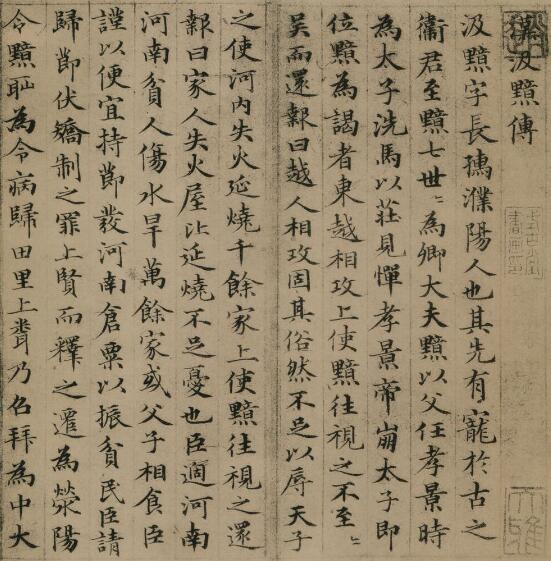 漢汲黯傳
汲黯字長孺濮陽人也其先有寵於古之
衛君至黯七世〻為卿大夫黯以父任孝景時
為太子洗馬以莊見憚孝景帝崩太子即
位黯為謁者東越相攻上使黯往視之不至〻
吴而還報曰越人相攻固其俗然不足以辱天子
之使河内失火延燒千餘家上使黯往視之還
報曰家人失火屋比延燒不足憂也臣過河南
河南貧人傷水旱萬餘家或父子相食臣
謹以便宜持節發河南倉粟以振貧民臣請
歸節伏矯制之罪上賢而釋之遷為滎陽
令黯恥為令病歸田里上聞乃召拜為中大